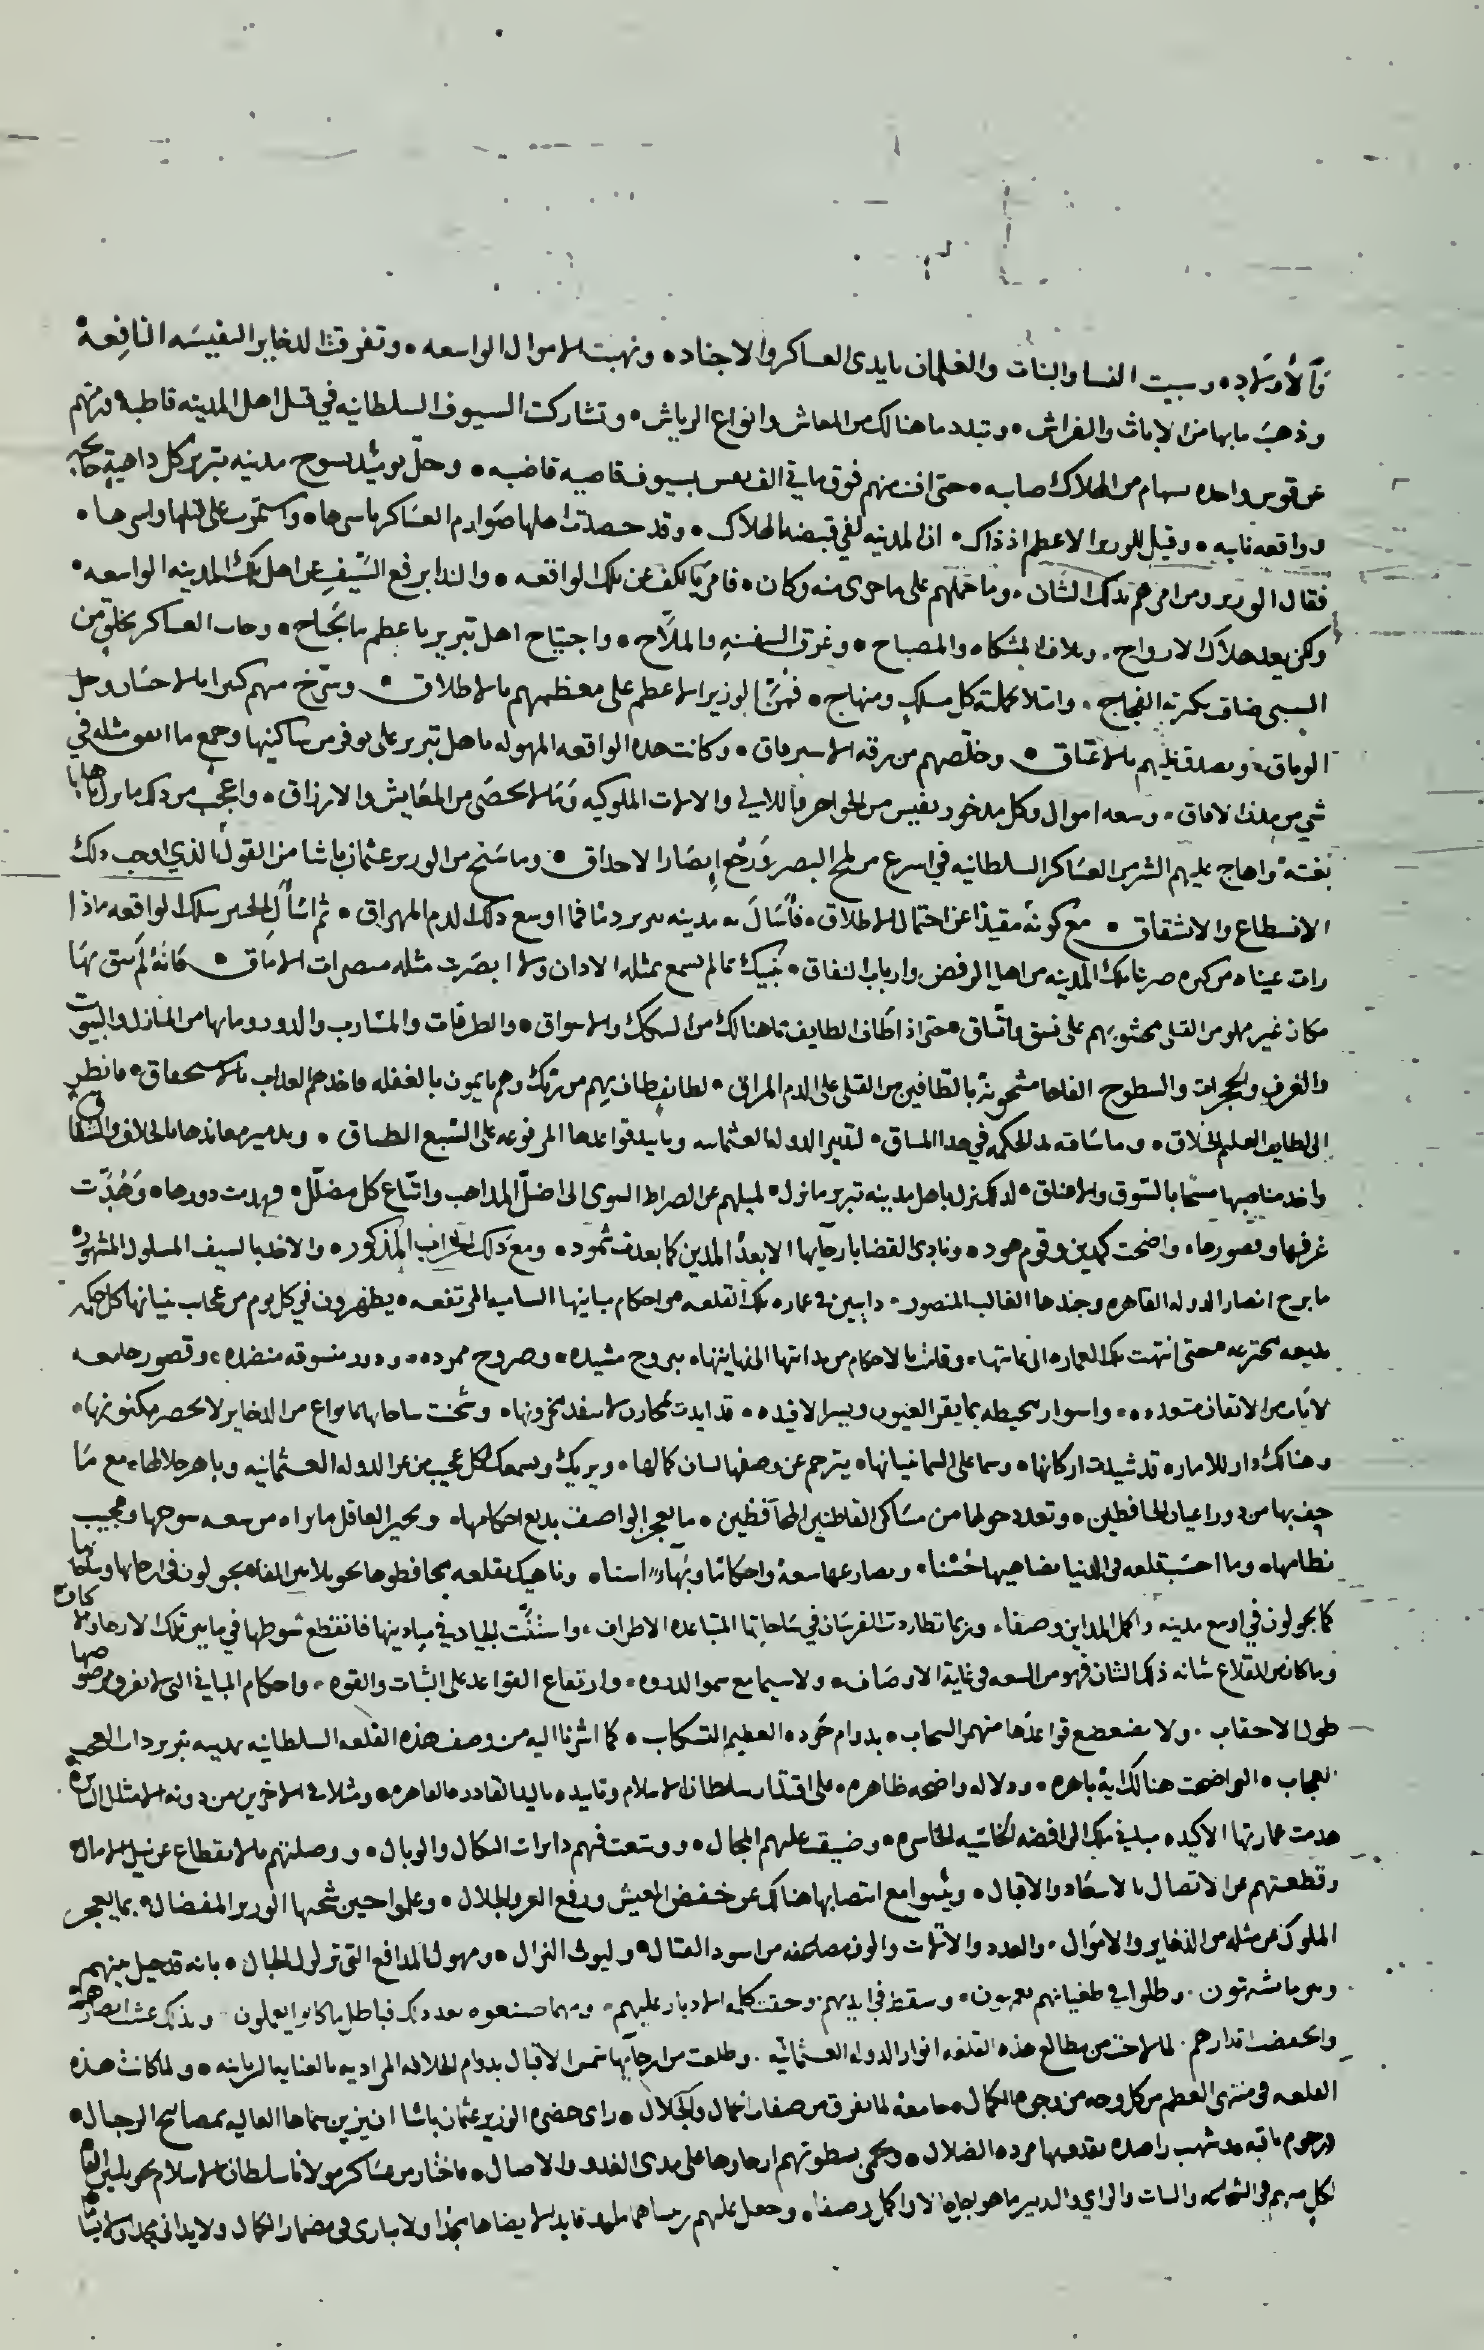 والأولاد، وسبيت النسا والبنات والغلمان بايدى العساكر والاجناد، ونهبت الاموال الواسعه، وتفرقت الدخاير النفيسه النافعة
وذهب ما بها من الاثاث والفراش، وتبدد ما هنالك من المعاش وانواع الرياش، وتشاركت السيوف السلطانيه في قتل اهل المدينه قاطبة ورمتهم
عن قوس واحده بسهام من الهلاك صايبه، حتى افنت منهم فوق مايتي الف نفس بسيوف قاضبه، وحل يوميذ بسوح مدينه تبريز كل داهية
وواقعه نايبه، وقيل للوزير الاعظم اذ ذاك، ان المدينه لفي قبضه الهلاك، وقد حصدت اهلها صوارم العساكر باسرها، واستمرت على قتلها واسرها،
فقال الوزير ومن امرهم بذلك الشان، وما حملهم على ما جرى منه وكان، فامر بالكف عن تلك الواقعه، والندا برفع السيف عن اهل تلك المدينه الواسعه،
ولكن بعد هلاك الارواح، وتلاف المشكاه والمصباح، وغرق السفينه والملاح، واجتياح اهل تبريز باعظم ما يجتاح، وجات العساكر بخلق من
السبي ضاقت بكثرته الفجاج، وامتلا بحملته كل مسلك ومنهاج، فمنّ الوزير الاعظم على معظمهم بالاطلاق، وسرّح منهم كثيرا بالاحسان وحل
الوثاق، وتصدق عليهم بالاعتاق، وخلصهم من رقه الاسترقاق، وكانت هذه الواقعه المهوله باهل تبريز على توفر من ساكنيها وجمع ما اتفق مثله في
شي من مدن الافاق، وسعه اموال وكل مدخور نفيس من الجواهر واللالي والالات الملوكيه وما لا يحصى من المعايش والارزاق، واعجب من ذلك ما نزل باهلها
بغتة واهاج عليهم الشر من العساكر السلطانيه في اسرع من لمح البصر ورجع ابصار الاحداق، وما سنح من الوزير عثمان باشا من القول الذي اوجب ذلك
الانسطاع والانشقاق، مع كونه مقيدا عن احتمال الاطلاق، فاسال به مدينه تبريز دما فما اوسع ذلك الدم المهراق، ثم اسأل الخبير بتلك الواقعه ماذا
رات عيناه من كثره صرعا تلك المدينه من اهالي الرفض وارباب النفاق، ينبيك بما لم تسمع بمثله الاذان ولا ابصرت مثله مبصرات الاماق، فانه لم يبق بها
مكان غير مملو من القتلى محشو بهم على نسق واتساق، حتى اذا طاف الطايف بما هنالك من السكك والاسواق، والطرقات والمسارب والدور وما بها من المنازل والبيوت
والغرف والحجرات والسطوح الفاها مشحونة بالطافين من القتلى على الدم المراق، لطايف طاف بهم من ربك وهم نايمون بالغفله فاخذهم العذاب بالاستحقاق، فانظر
الى لطايف العليم الخلاق، وما ساقته له الحكمه في هذا المساق، لتقرير الدوله العثمانيه وتاييد قواعدها المرفوعه على السبع الطباق، وتدمير معاندها بالخلاف والشقاق
واخذ مناصبها مسحا بالسوق والاعناق، لذلك نزل باهل مدينه تبريز ما نزل، لميلهم عن الصراط السوى الى اضل المذاهب واتباع كل مضلل، فهدمت دورها، وخُدّت
غرفها وقصورها، واضحت كمدين وقوم هود، ونادى القضا بارجآيها الا بعدا لمدين كما بعدت ثمود، ومع ذلك الخراب المذكور، والاخذ بالسيف المسلول المشهور،
ما برح انصار الدوله القاهره وجندها الغالب المنصور، دابين في عماره تلك القلعه من احكام مبانيها الساميه المرتفعه، يظهرون في كل يوم من عجايب بنيانها كل حكمه
بديعه مخترعه، حتى انتهت تلك العماره الى غايتها، وقامت بالاحكام من بدايتها الى نهايتها، ببروج مشيده، وصروح ممرده، ودور منسوقه منضده، وقصور جامعه
لايات من الاتقان متعدده، واسوار محيطه بما يقر العيون ويسر الافيده، قد ايدت بمخازن لا ينفد مخزونها، وشحنت ساحاتها بانواع من الدخاير لا يحصر مكنونها،
وهنالك دار للاماره قد شيدت اركانها، وسما على السما بنيانها، يترجم عن وصفها لسان كمالها، ويريك ويسمعك كل عجيب من عز الدوله العثمانيه وباهر جلالها، مع ما
حف بها من دور اعيان الحافظين، وتعدد حولها من مساكن القاطنين المحافظين، ما يعجز الواصف بديع احكامها، ويحير العاقل ما يراه من سعه سوحها وعجيب
نظامها، وما احسب قلعه في الدنيا تضاهيها حسنا، وتضارعها سعة واحكاما وبهاء اسنا، وناهيك بقلعه محافظوها نحو ثلاثين الفا يجولون في ارجايها وساحاتها
كما يجولون في اوسع مدينه واكمل المداين وصفا، وربما تطاردت الفرسان في ساحاتها المتباعده الاطراف، واستنّت الجياد في ميادينها فانقطع شوطها في ما بين تلك الارجا
وما كان من القلاع شانه ذلك الشان فهو من السعه في غاية الاوصاف، ولا سيما مع سمو الذروه، وارتفاع القواعد على الثبات والقوه، واحكام المباني التي لا يغير مرصوصها
طول الاحقاب، ولا يضعضع قواعدها منهمر السحاب، بدوام جوده العظيم التسكاب، كما اشرنا اليه من وصف هذه القلعه السلطانيه بمدينه تبريز ذات العجب
العجاب، التي اضحت هنالك اية باهره، ودلاله واضحه ظاهره، على اقتدار سلطان الاسلام وتاييده باليد القادره القاهره، ومثلا في الاخرين من دونه الامثال السايره
هدمت عمارتها الاكيده مباني تلك الرافضه الخاسيه الخاسره، وضيقت عليهم المجال، ووسعت فيهم دايرات النكال والوبال، ووصلتهم بالانقطاع عن نيل الامال
وقطعتهم عن الاتصال بالاسعاد والاقبال، ويئسوا مع انتصابها هناك عن خفض العيش ورفع العز والجلال، وعلموا حين شحنها الوزير المفضال، بما يعجز
الملوك عن مثله من الذخاير والاموال، والعدد والالات والوف مصطفه من اسود القتال، وليوث النزال، ومهول المدافع التي تزلزل الجبال، بانه قد حيل بينهم
وبين ما يشتهون، وظلوا في طغيانهم يعمهون، وسقط في ايديهم وحقت كلمه الادبار عليهم، ومهما صنعوه بعد ذلك فباطل ما كانوا يعملون، وبذلك عشت ابصارهم
وانخفضت اقدارهم، لما لاحت من مطالع هذه القلعه انوار الدوله العثمانيه، وطلعت من ارجآيها شمس الاقبال بدوام الخلافه المراديه بالعنايه الربانيه، ولما كانت هذه
القلعه في منتهى العظم من كل وجه من وجوه الكمال، جامعة لما تفرق من صفات الجمال والجلال، راى حضره الوزير عثمان باشا ان يزين سماها العاليه بمصابيح الرجال،
ورجوم ثاقبه بشهب راصده يقذف بها مرده الضلال، ويحمى بسطوتهم ارجاوها على مدى الغدو والاصال، فاختار من عساكر مولانا سلطان الاسلام نحو ثلثين الفا
لكل منهم في الشجاعه والثبات والراى والتدبير ما هو اولى وصفا، وجعل عليهم رييسا هماما قايدا لا يضاها مجدا ولا يبارى في مضمار الكمال ولا يدانى